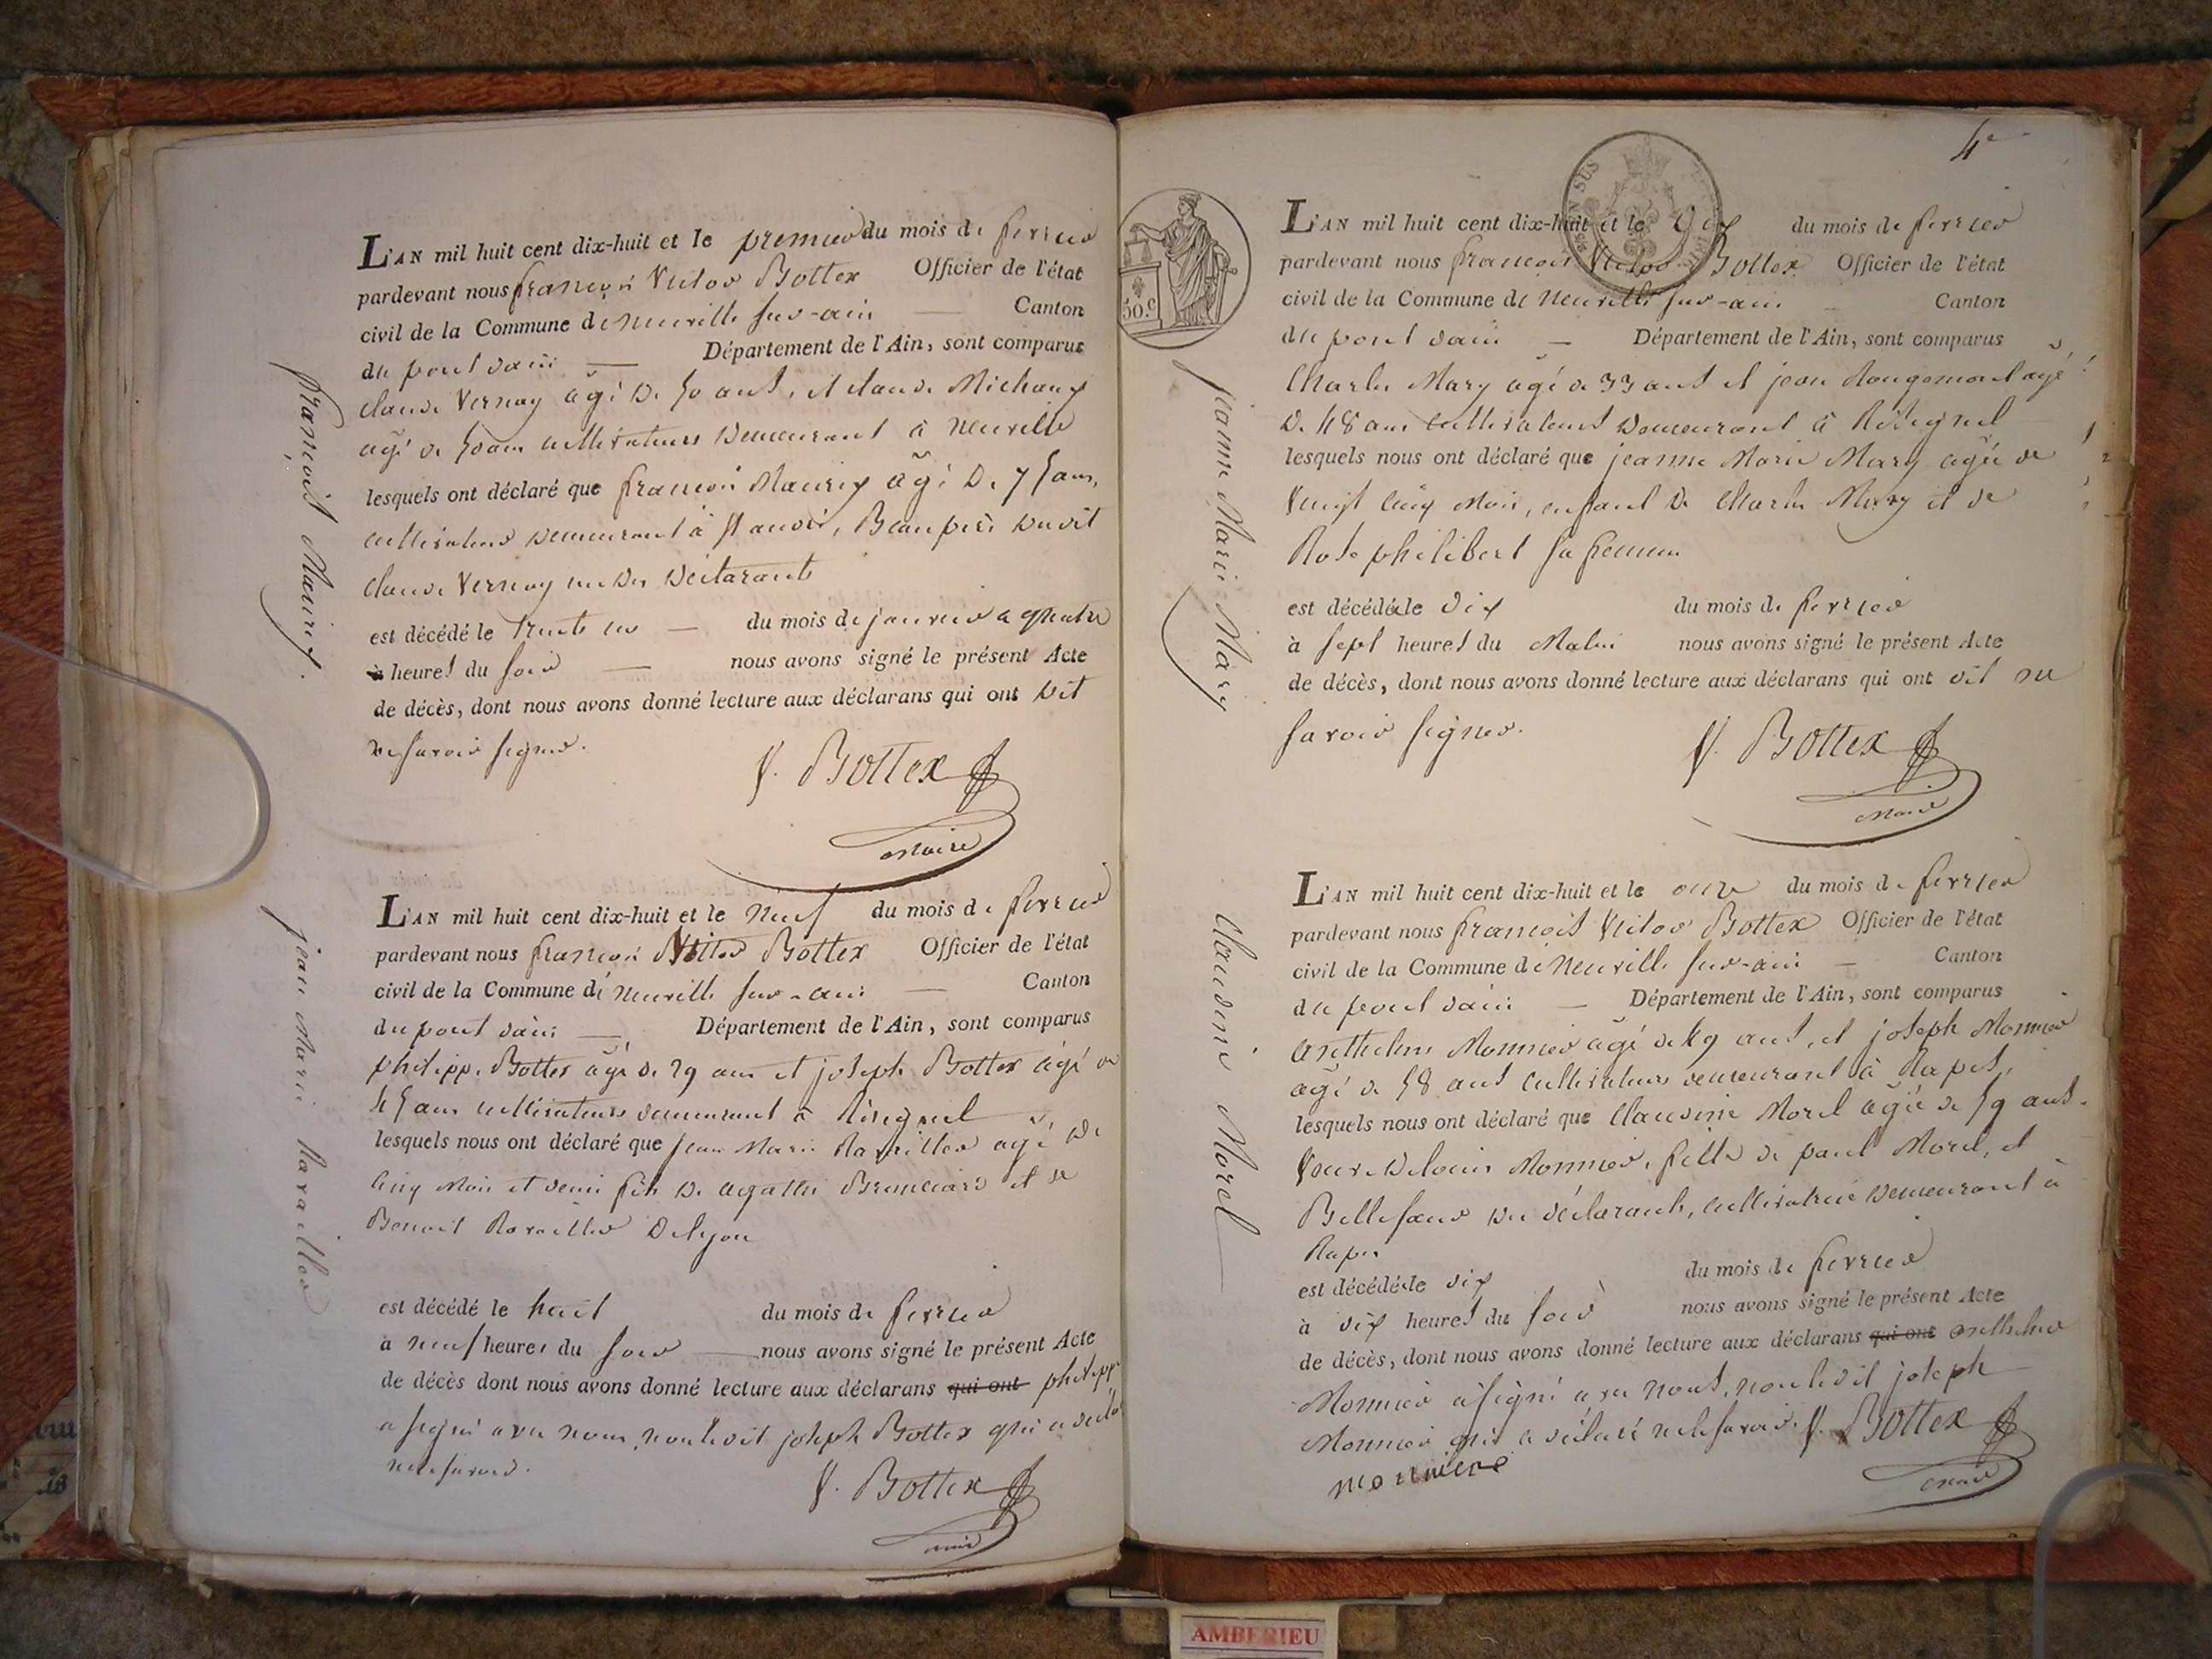 françois Maurix
L'AN mil huit cent dix-huit et le premier du mois de fevrier
pardevant nous françois Victor Bottex Officier de l'état
civil de la Commune de neuville sur-ain Canton
du pont dain Département de l'Ain, sont comparus
claude Vernay agé de 50 ans, et claude Michaux
agé de 50 ans cultivateurs demeurant à neuville
lesquels ont déclaré que françois Maurix agé de 75 ans,
cultivateur demeurant à St andré, Beaupere dudit
claude Vernay un des déclarants
est décédé le trente un du mois de janvier a quatre
à heures du soir nous avons signé le présent Acte
de décès, dont nous avons donné lecture aux déclarans qui ont dit
ne savoir signer.
V. Bottex
Maire
jean Marie Ravailler
L'AN mil huit cent dix-huit et le neuf du mois de fevrier
pardevant nous françois Victor Bottex Officier de l'état
civil de la Commune de neuville sur-ain Canton
du pont dain Département de l'Ain, sont comparus
philippe Bottex agé de 29 ans et joseph Bottex agé de
45 ans cultivateurs demeurant à
lesquels nous ont déclaré que jean Marie Ravailler agé de
cinq Mois et demi fils de agathe et de
Benoit Ravailler De lyon
est décédé le huit du mois de fevrier
à neuf heures du soir nous avons signé le présent Acte
de décès dont nous avons donné lecture aux déclarans qui ont philippe
a signé avec nous, non ledit joseph Bottex qui a déclaré
ne le savoir.
V. Bottex
maire
4e
50 c
jeanne Marie Mary
L'AN mil huit cent dix-huit et le dix du mois de fevrier
pardevant nous françois Victor Bottex Officier de l'état
civil de la Commune de neuville sur-ain Canton
du pont dain Département de l'Ain, sont comparus
Charles Mary agé de 33 ans et jean Rougemont agé
de 48 ans cultivateurs demeurant à
lesquels nous ont déclaré que jeanne Marie Mary agée de
Vingt cinq Mois, enfant de Charles Mary et de
Rose philibert sa femme
est décédée le dix du mois de fevrier
à sept heures du Matin nous avons signé le présent Acte
de décès, dont nous avons donné lecture aux déclarans qui ont dit ne
savoir signer.
V. Bottex
Maire
Claudine Morel
L'AN mil huit cent dix-huit et le onze du mois de fevrier
pardevant nous françois Victor Bottex Officier de l'état
civil de la Commune de neuville sur-ain Canton
du pont dain Département de l'Ain, sont comparus
anthelme Monnier agé de 49 ans, et joseph Monnier
agé de 58 ans cultivateurs demeurant à Rapes,
lesquels nous ont déclaré que Claudine Morel agée de 59 ans.
Veuve de louis Monnier, fille de paul Morel, et
Bellesoeur des déclarants, cultivatrice demeurant à
Rapes
est décédée le dix du mois de fevrier
à dix heures du soir nous avons signé le présent Acte
de décès, dont nous avons donné lecture aux déclarans qui ont anthelme
Monnier a signé avec nous, non ledit joseph
Monnier qui a déclaré ne le savoir. V. Bottex
monniere
maire
AMBERIEU